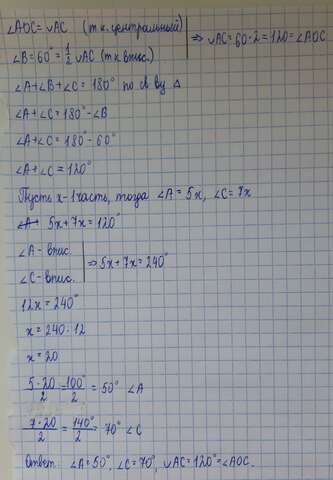 ∠AOC = ◡AC (т.к. центральный) | ⇒ ◡AC = 60·2 = 120 = ∠AOC
∠B = 60° = 1/2 ◡AC (т.к. впис.)
∠A + ∠B + ∠C = 180° по св ву △
∠A + ∠C = 180° - ∠B
∠A + ∠C = 180° - 60°
∠A + ∠C = 120°
Пусть x - 1 часть, тогда ∠A = 5x, ∠C = 7x
5x + 7x = 120°
∠A - впис.
∠C - впис. | ⇒ 5x + 7x = 240°
12x = 240°
x = 240 · 12
x = 20
5·20/2 = 100°/2 = 50° ∠A
7·20/2 = 140°/2 = 70° ∠C
Ответ: ∠A = 50°, ∠C = 70°, ◡AC = 120° = ∠AOC.